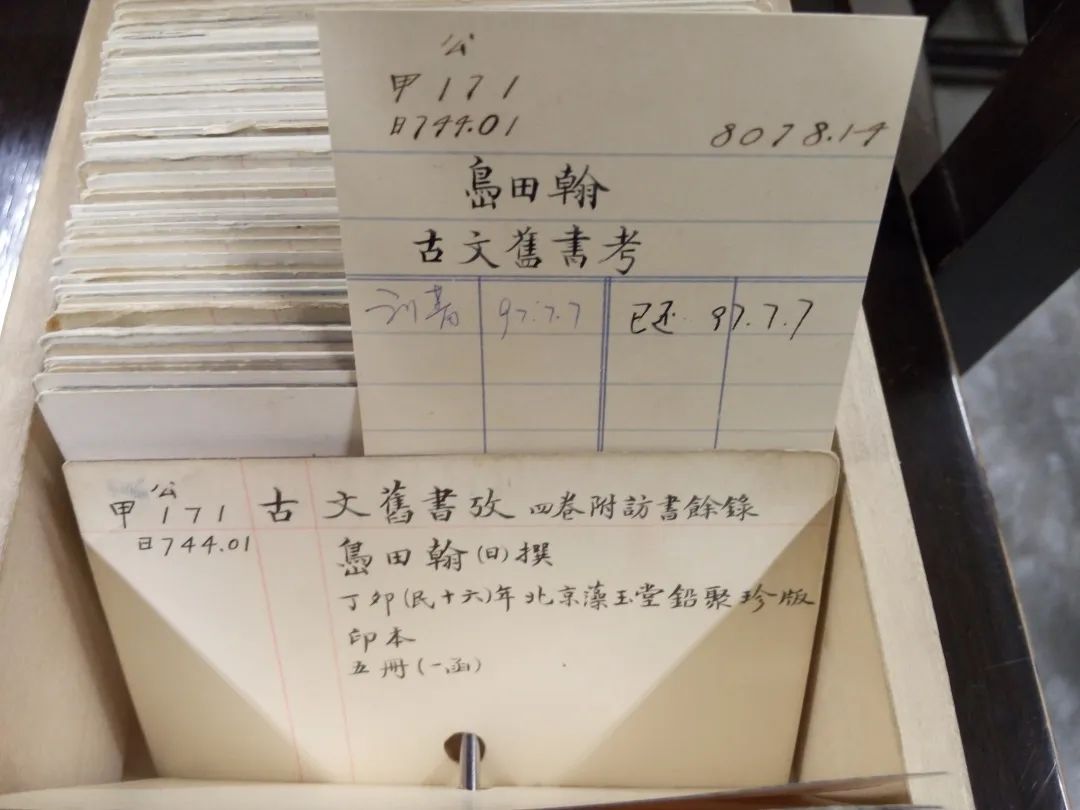 公
甲 171
日744.01
8078.14
島田翰
古文舊書考
97.7.7 已还 97.7.7
公
甲 171 古文舊書攷 四卷附訪書餘錄
日744.01
島田翰(日)撰
丁卯(民十六)年北京藻玉堂鉛聚珍版
印本
五冊(一函)